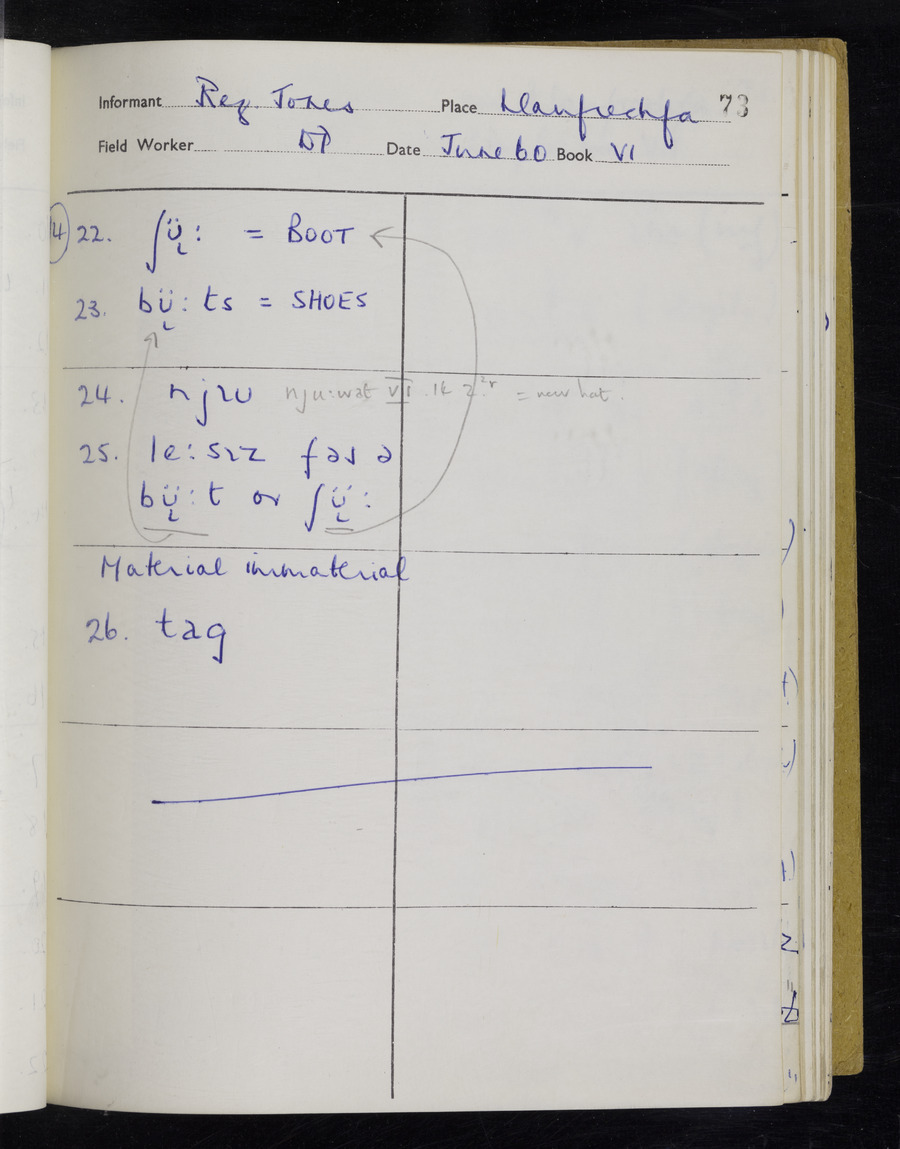 Informant Reg. Jones Place Llanfrechfa 73
Field Worker DP Date June 60 Book VI
14 22. ʃü̞: = BOOT
23. bü̞: ts = SHOES
24. njɪu nju:wat VI .14 = new hat.
25. le:sɪz fəɹ ə
bü̞:t or ʃü̞:
Material immaterial
26. tag